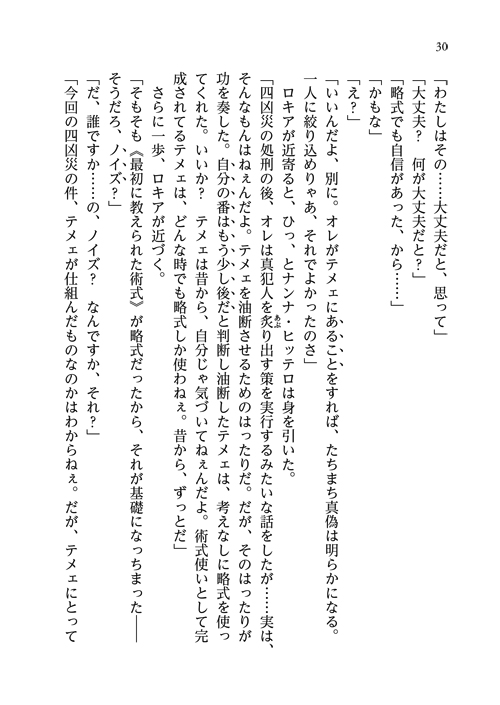 30
「わたしはその……大丈夫だと、思って」
「大丈夫？　何が大丈夫だと？」
「略式でも自信があった、から……」
「かもな」
「え？」
「いいんだよ、別に。オレがテメェにあることをすれば、たちまち真偽は明らかになる。
一人に絞り込めりゃあ、それでよかったのさ」
　ロキアが近寄ると、ひっ、とナンナ・ヒッテロは身を引いた。
「四凶災の処刑の後、オレは真犯人を炙り出す策を実行するみたいな話をしたが……実は、
そんなもんはねぇんだよ。テメェを油断させるためのはったりだ。だが、そのはったりが
功を奏した。自分の番はもう少し後だと判断し油断したテメェは、考えなしに略式を使っ
てくれた。いいか？　テメェは昔から、自分じゃ気づいてねぇんだよ。術式使いとして完
成されてるテメェは、どんな時でも略式しか使わねぇ。昔から、ずっとだ」
　さらに一歩、ロキアが近づく。
「そもそも《最初に教えられた術式》が略式だったから、それが基礎になっちまった――
そうだろ、ノイズ？」
「だ、誰ですか……の、ノイズ？　なんですか、それ？」
「今回の四凶災の件、テメェが仕組んだものなのかはわからねぇ。だが、テメェにとって